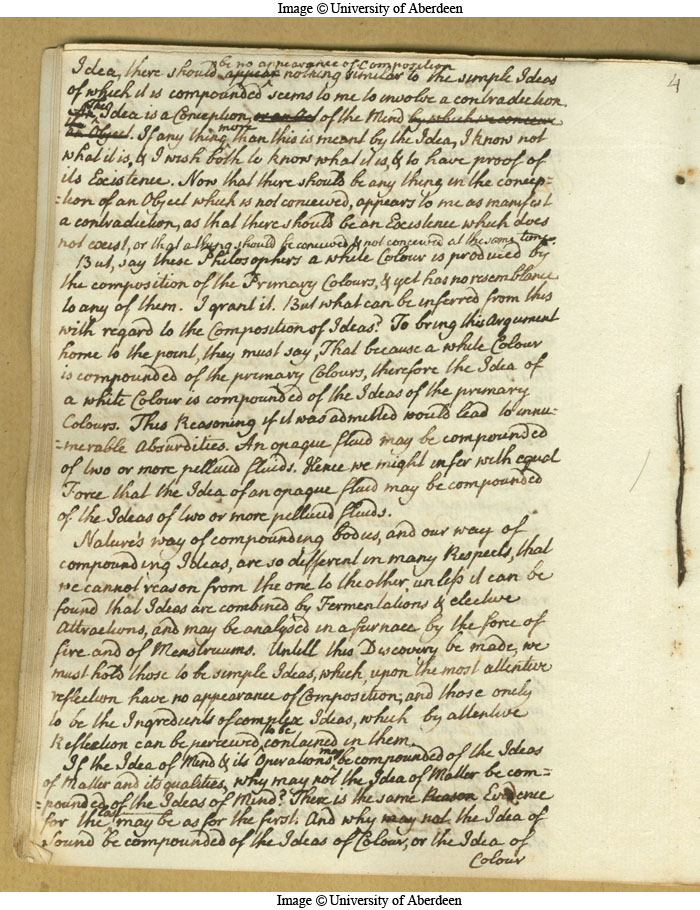 Image © University of Aberdeen
be no appearance of Composition
Idea, there should appear nothing similar to the simple Ideas
of which it is compounded seems to me to involve a contradiction.
The
An Idea is a Conception, or an Act of the Mind by which we conceive
more
an Object. If any thing than this is meant by the Idea, I know not
what it is, & I wish both to know what it is, & to have proof of
its Existence. Now that there should be any thing in the concep-
-tion of an Object which is not conceived, appears to me as manifest
a contradiction, as that there should be an Existence which does
not exist, or that a thing should be conceived & not conceived at the same time.
But, say these Philosophers a white Colour is produced by
the composition of the Primary Colours, & yet has no resemblance
to any of them. I grant it. But what can be inferred from this
with regard to the Composition of Ideas? To bring this Argument
home to the point, they must say, That because a white Colour
is compounded of the primary Colours, therefore the Idea of
a white Colour is compounded of the Ideas of the primary
Colours. This Reasoning if it was admitted would lead to innu-
-merable Absurdities. An opaque fluid may be compounded
of two or more pellucid fluids. Hence we might infer with equal
Force that the Idea of an opaque fluid may be compounded
of the Ideas of two or more pellucid fluids.
Nature's way of compounding bodies, and our way of
compounding Ideas, are so different in many Respects, that
we cannot reason from the one to the other, unless it can be
found that Ideas are combined by Fermentations & elective
Attractions, and may be analysed in a furnace by the force of
fire and of Menstruums. Untill this Discovery be made, we
must hold those to be simple Ideas, which, upon the most attentive
reflection have no appearance of Composition; and those onely
to be the Ingredients of complex Ideas, which by attentive
to be
Reflection can be perceived contained in them.
may
If the Idea of Mind & its Operations be compounded of the Ideas
of Matter and its qualities, why may not the Idea of Matter be com-
-pounded of the Ideas of Mind? There is the same Reason Evidence
last
for the may be as for the first. And why may not the Idea of
Sound be compounded of the Ideas of Colour, or the Idea of
Colour
4
Image © University of Aberdeen